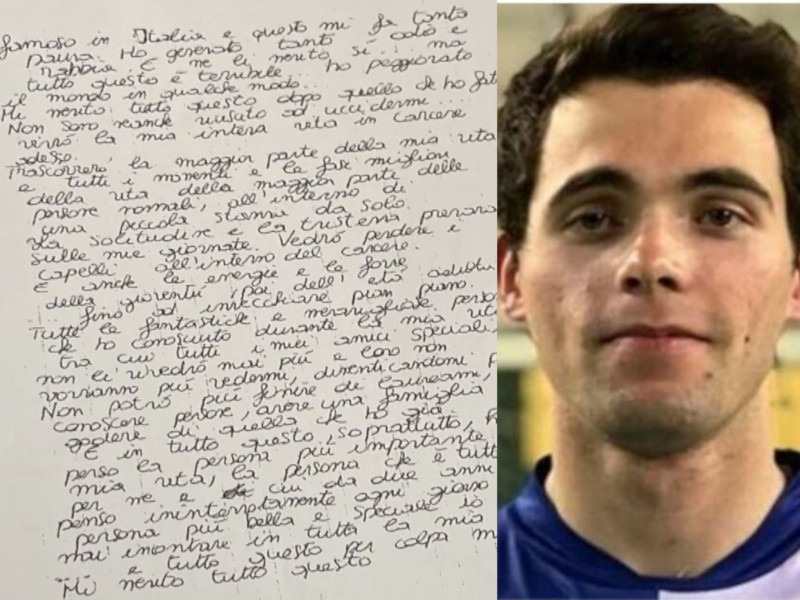 famoso in Italia e questo mi fa tanta
paura. Ho generato tanto odio e
rabbia. E me li merito sì... ma
tutto questo è terribile... ho peggiorato
il mondo in qualche modo...
Mi merito tutto questo dopo quello che ho fat
Non sono neanche riuscito ad uccidermi...
vivrò la mia intera vita in carcere
adesso.
Trascorrerò la maggior parte della mia vita
e tutti i momenti e le fasi migliori
della vita della maggior parte delle
persone normali, all'interno di
una piccola stanza da solo.
La solitudine e la tristezza prevarra
sulle mie giornate. Vedrò perdere i
capelli all'interno del carcere.
E anche le energie e le forze
della gioventù, poi dell'età adulta
fino ad invecchiare pian piano.
Tutte le fantastiche e meravigliose perso
che ho conosciuto durante la mia vit
tra cui tutti i miei amici speciali,
non li rivedrò mai più e loro non
vorranno più vedermi, dimenticandomi p
Non potrò più finire di laurearmi,
conoscere persone, avere una famiglia
godere di quella che ho già.
E in tutto questo, soprattutto, h
perso la persona più importante
mia vita, la persona che è tutt
per me e a cui da due anni
penso ininterrottamente ogni giorno
persona più bella e speciale io
mai incontrare in tutta la mia
e tutto questo per colpa m
Mi merito tutto questo